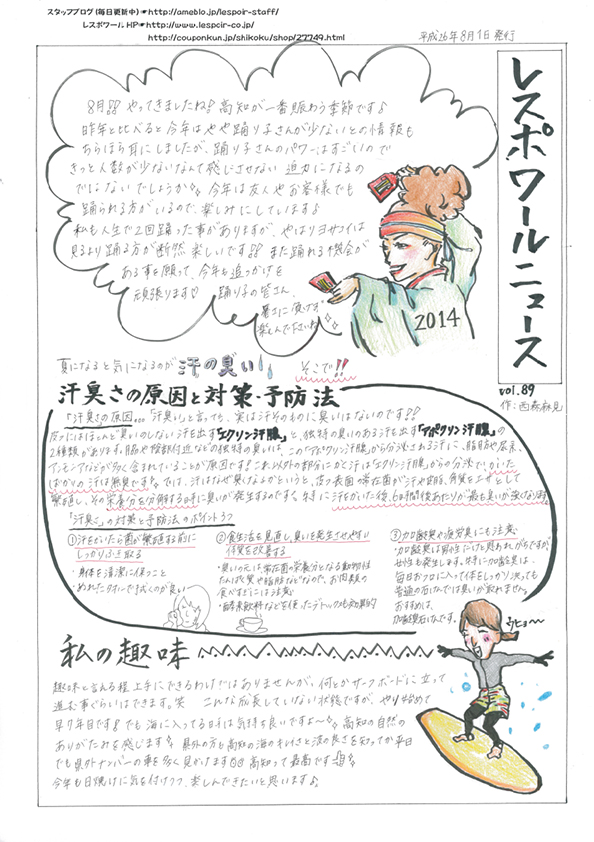 スタッフブログ(毎日更新中)☛http://ameblo.jp/lespoir-staff/
レスポワールHP☛http://www.lespoir-co.jp/
http://couponkun.jp/shikoku/shop/27749.html
平成26年8月1日発行
レスポワールニュース
vol.89
作:西森麻見
8月!! やってきましたね!高知が一番賑わう季節です♪
昨年と比べると今年はやや踊り子さんが少ないとの情報も
ちらほら耳にしましたが、踊り子さんのパワーはすごいので
きっと人数が少ないなんて感じさせない 迫力になるの
ではないでしょうか 今年は友人やお客様でも
踊られる方がいるので、楽しみにしています♪
私も人生で2回踊った事がありますが、やはりヨサコイは
見るより踊る方が断然 楽しいです!! また踊れる機会が
ある事を願って、今年も追っかけを
頑張ります♡ 踊り子の皆さん、
暑さに負けず
楽しんでくださいね
2014
夏になると気になるのが 汗の臭い
そこで!!
汗臭さの原因と対策・予防法
「汗臭さの原因…「汗臭い」と言っても、実は汗そのものに臭いはないのです!!
汗にはほとんど臭いのしない汗を出す「エクリン汗腺」と、独特の臭いのある汗を出す「アポクリン汗腺」の
2種類があります。脇や陰部付近などの独特の臭いは、この「アポクリン汗腺」から分泌される汗に、脂肪や尿素、
アンモニアなどが多く含まれていることが原因です!これ以外の部分にかく汗は「エクリン汗腺」からの分泌で、かいた
ばかりの汗は無臭です!では、汗はなぜ臭くなるかというと、皮フ表面の常在菌が汗や皮脂、角質をエサとして
繁殖し、その栄養分を分解する時に臭いが発生するのです。特に汗をかいた後、
「汗臭さ」の対策と予防法のポイント3つ
①汗をかいたら菌が繁殖する前に
しっかりふき取る
・身体を清潔に保つこと
・ぬれたタオルでふくのが良い
②食生活を見直し、臭いを発生させやすい
体質を改善する
・臭いの元は常在菌の栄養分となる動物性
たんぱく質や脂肪などなので、お肉類の
食べすぎには注意
・酵素飲料などを使ったデトックスも効果的
③加齢臭や疲労臭にも注意
・加齢臭は男性だけと思われがちですが、
女性も発生します。特に加齢臭は、
毎日おフロに入って体をしっかり洗っても
普通の石けんでは臭いが取れません。
おすすめは、
石けんです。
ウヒョ〜
私の趣味
趣味と言える程 上手にできるわけではありませんが、何とかサーフボードに立って
進む事ぐらいはできます。笑 こんな成長していない状態ですが、やり始めて
早7年目です!でも海に入ってる時は気持ち良いですよ〜 高知の自然の
ありがたみを感じます♪ 県外の方も高知の海のキレイさと波の良さを知ってか平日
でも県外ナンバーの車を多く見かけます 高知って最高です
今年も日焼けに気を付けつつ、楽しんできたいと思います♪